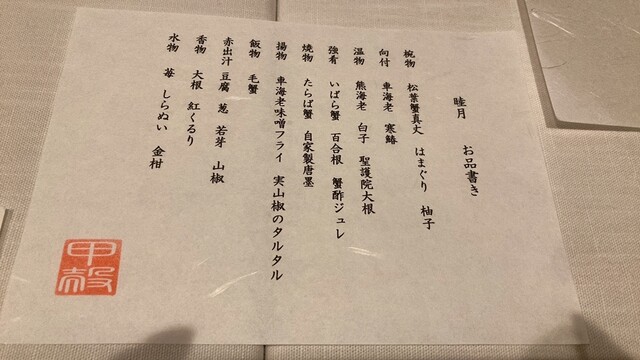 睦月　お品書き
椀物　松葉蟹真丈　はまぐり　柚子
向付　車海老　寒鰆
温物　熊海老　白子　聖護院大根
強肴　いばら蟹　百合根　蟹酢ジュレ
焼物　たらば蟹　自家製唐墨
揚物　車海老味噌フライ　実山椒のタルタル
飯物　毛蟹
赤出汁　豆腐　葱　若芽　山椒
香物　大根　紅くるり
水物　苺　しらぬい　金柑
甲殻